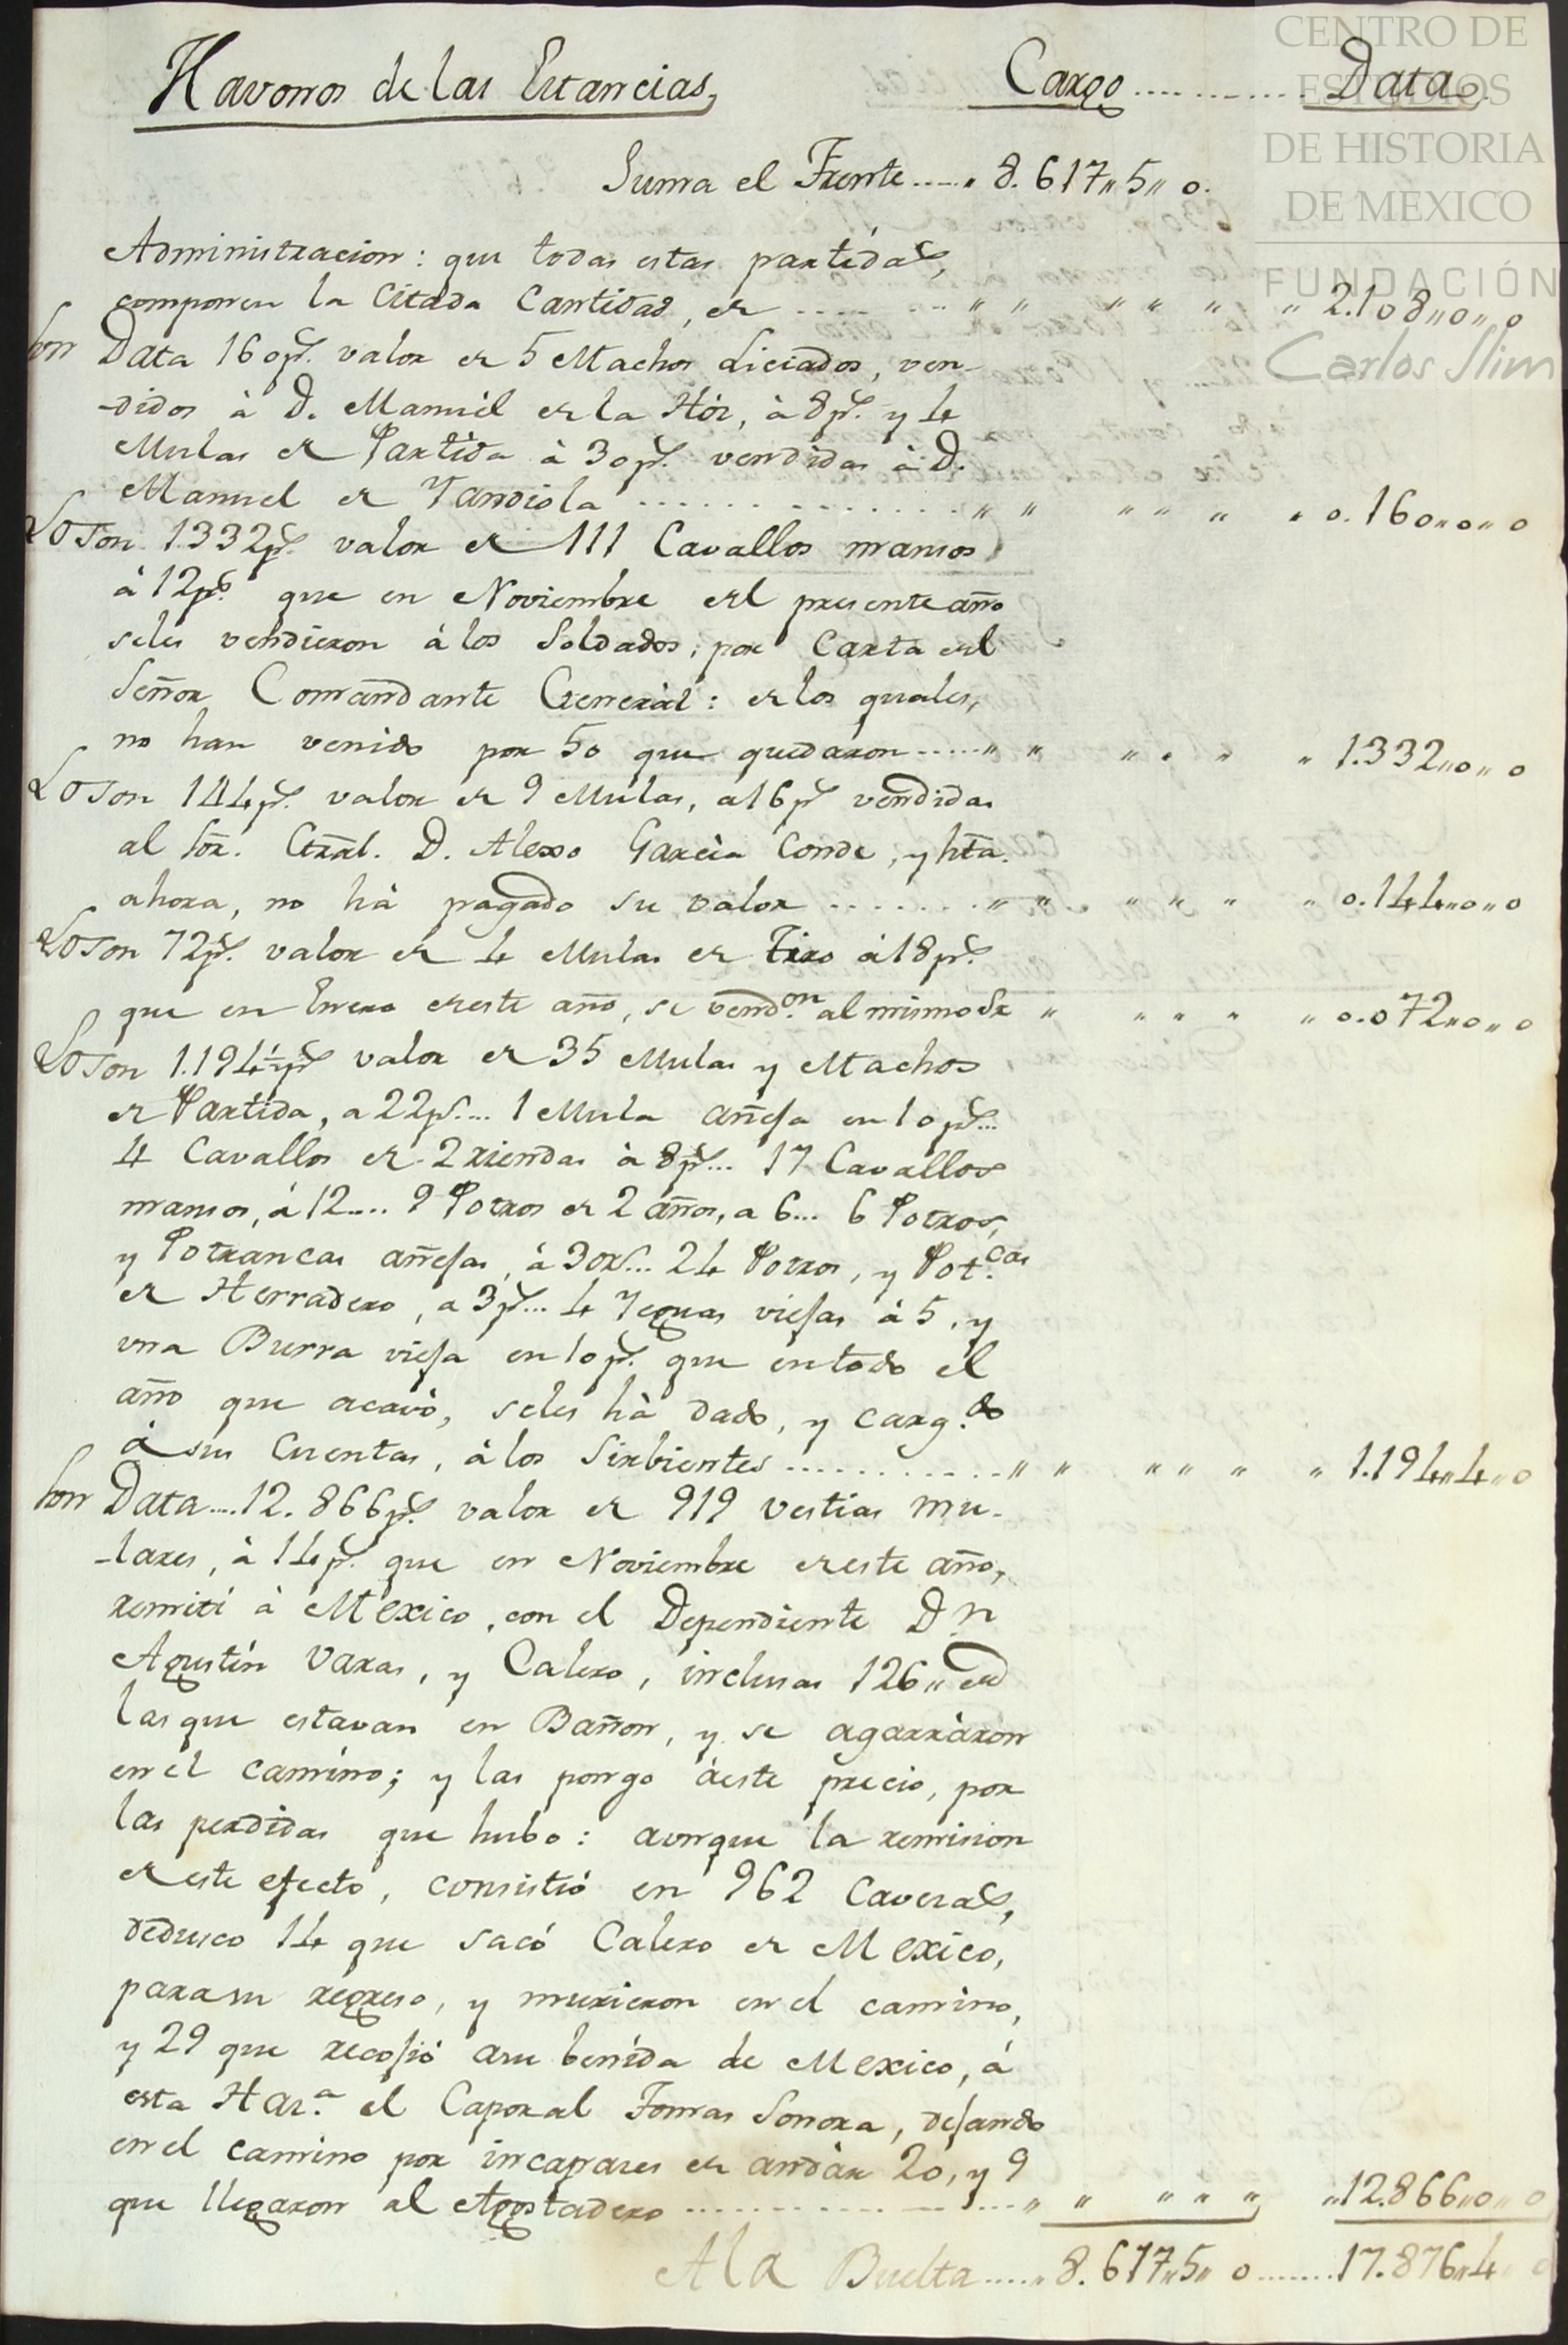 Havonos de las Estancias, Cargo ............ Data.
Suma el Frente ..... " 8.617 " 5 " 0.
Administracion: que todas estas partidas,
componen la Citada Cantidad, de ........... " " " " " " 2.108 " 0 " 0
Son Data 160 ps. valor de 5 Machos Liciados, ven-
-didos à D. Manuèl de la Hòz, à 8 ps. y 4
Mulas de Partida à 30 ps. vendidas à D.
Manuel de Yandiola .............. " " " " " " 0.160 " 0 " 0
Lo Son 1332 ps. valor de 111 Cavallos mansos
à 12 ps. que en Noviembre del presente año
seles vendieron à los Soldados; por Carta del
Señor Comandante Generàl: de los quales,
no han venido por 50 que quedaron ..... " " " " " " 1.332 " 0 " 0
Lo Son 144 ps. valor de 9 Mulas, a 16 ps vendidas
al Sor. Gral. D. Alexo Garcìa Conde, y hta.
ahora, no hà pagado su valor ....... " " " " " " 0.144 " 0 " 0
Lo Son 72 ps. valor de 4 Mulas de Tiro à 18 ps.
que en Enero de este año, se vend.on al mismo Sr " " " " " 0.072 " 0 " 0
Lo Son 1.194 ½ ps valor de 35 Mulas y Machos
de Partida, a 22 ps.... 1 Mula añeja en 10 ps...
4 Cavallos de 2 riendas à 8 ps... 17 Cavallos
mansos, à 12.... 9 Potros de 2 años, a 6... 6 Potros,
y Potrancas añejas, à 30 rs... 24 Potros, y Pot.cas
de Herradero, a 3 ps... 4 Yeguas viejas à 5, y
una Burra vieja en 10 ps. que en todo el
año que acavò, seles hà dado, y carg.do
à sus Cuentas, à los Sirbientes ............ " " " " " " 1.194 " 4 " 0
Son Data.... 12.866 ps. valor de 919 vestias mu-
-lares, à 14 ps. que en Noviembre de este año,
remiti à Mexico, con el Dependiente Dn.
Agustin Varas, y Calero, inclusas 126 " de
las que estavan en Bañon, y se agarràron
en el camino; y las pongo à este precio, por
las perdidas que hubo: aunque la remision
de este efecto, consistiò en 962 Cavezas,
dedusco 14 que sacó Calero de Mexico,
para su regreso, y murieron en el camino,
y 29 que recojió a su benida de Mexico, á
esta Haz.a el Caporal Tomas Sonora, dejando
en el camino por incapazes de andàr 20, y 9
que llegaron al Agostadero .................. " " " " " " 12.866 " 0 " 0
A la Buelta ..... " 8.617 " 5 " 0 ....... 17.876 " 4 " 0
CENTRO DE
ESTUDIOS
DE HISTORIA
DE MEXICO
FUNDACIÓN
Carlos Slim